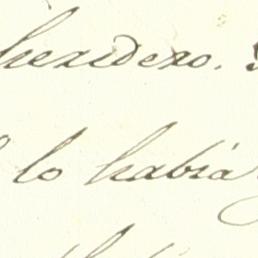 heredero.
lo había